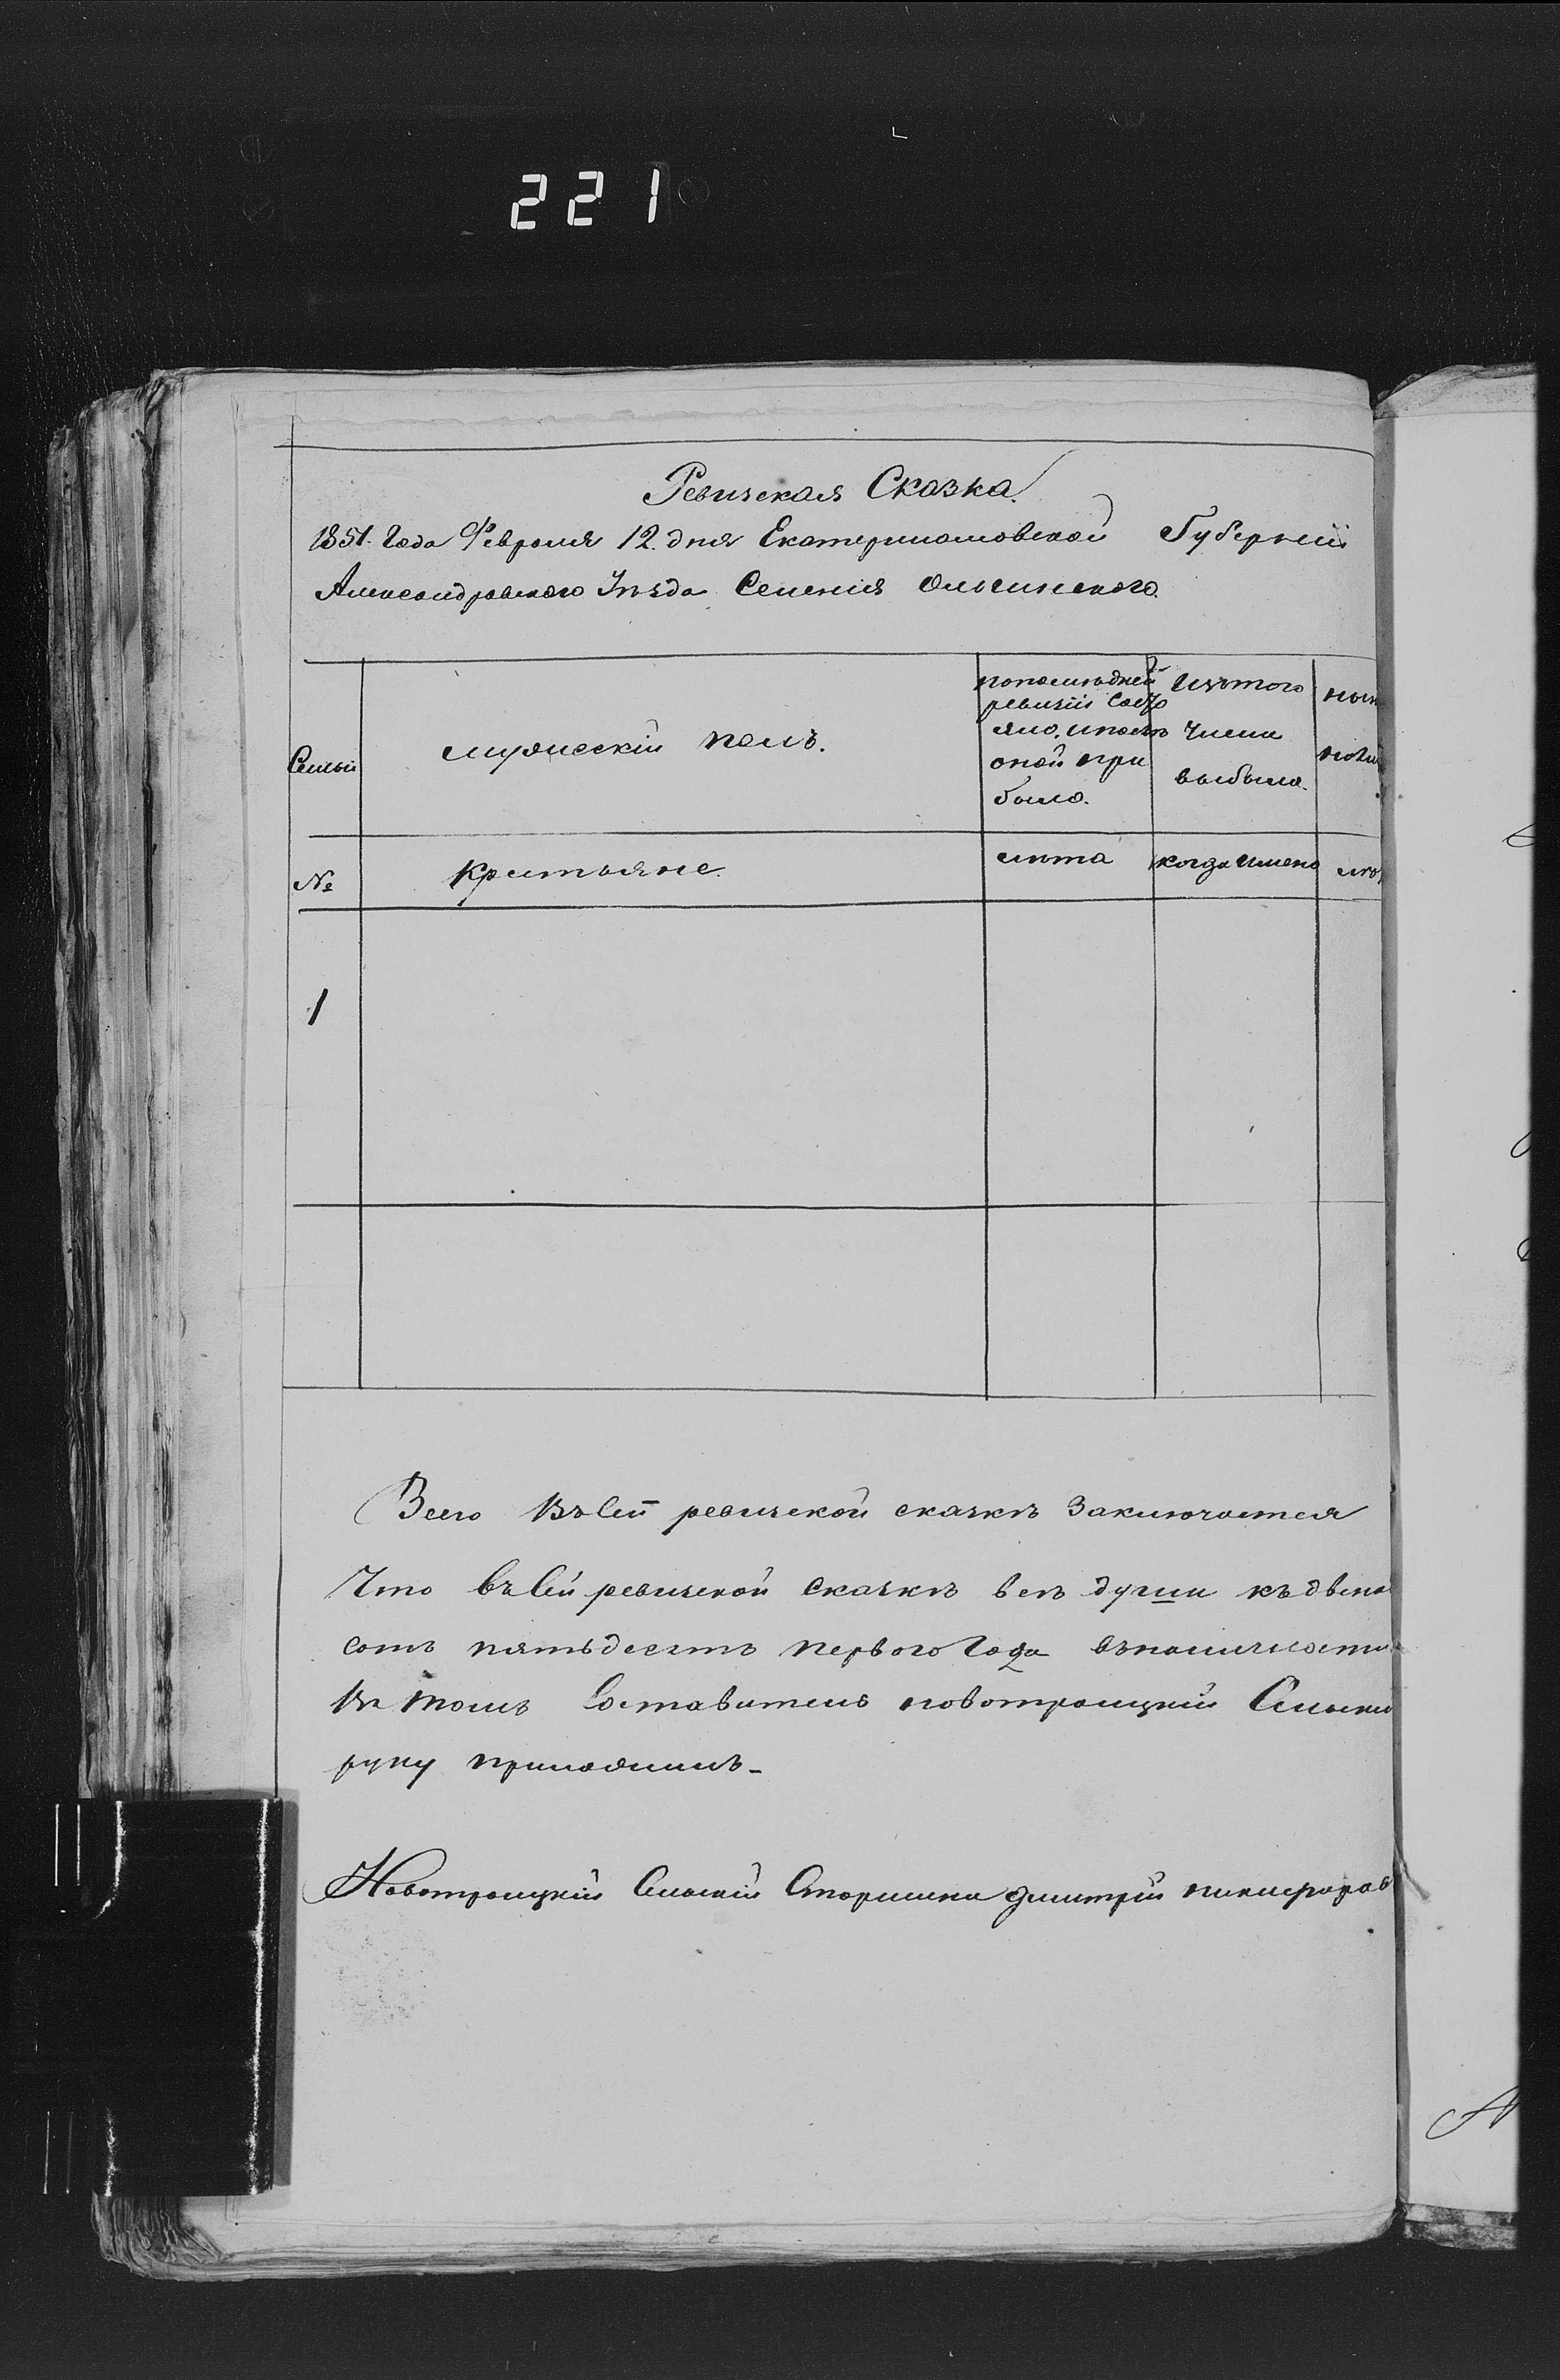 221
Ревизская Сказка.
1851. Года Февраля 12. дня Екатеринославской Губернїи
Александровского Уѣзда Селенїя Ольгинского.
Семьи
мужескїй полъ.
попослѣдней
ревизїи состо
яло, ипослѣ
оной при
было.
Изътого
числа
выбыло.
нын
№
Крестьяне.
лѣта
когда имено
лѣт
1
Всего Въсей ревизской сказкѣ Заключается
Что Въсей ревизской сказкѣ всѣ души
сотъ пятьдесятъ первого Года вналичности
Въ томъ Составитель новотроицкїй Сельски
руку приложилъ-
Новотроицкїй Сельскїй Старшина Дмитрїй